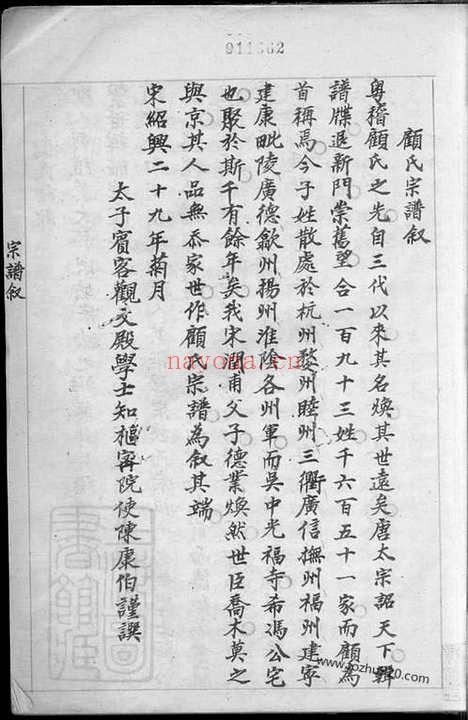 911662
顧氏宗譜叙
粤稽顧氏之先自三代以來其名煥其世遠矣唐太宗詔天下輯
譜牒退新門崇舊望合一百九十三姓千六百五十一家而顧為
首稱焉今子姓散處於杭州婺州睦州三衢廣信撫州福州建寧
建康毗陵廣德歙州揚州淮陰各州軍而吳中光福寺希馮公宅
也聚於斯千有餘年矣我宋潤甫父子德業煥然世臣喬木莫之
與京其人品無忝家世作顧氏宗譜為叙其端
宋紹興二十九年菊月
太子賓客觀文殿學士知樞密院使陳康伯謹譔
宗譜叙
navodata.cn